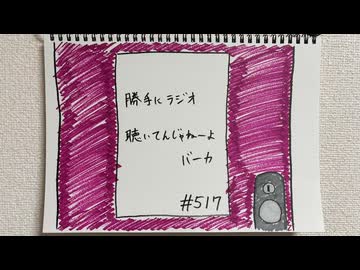 勝手にラジオ
聴いてんじゃねーよ
バーカ
#517